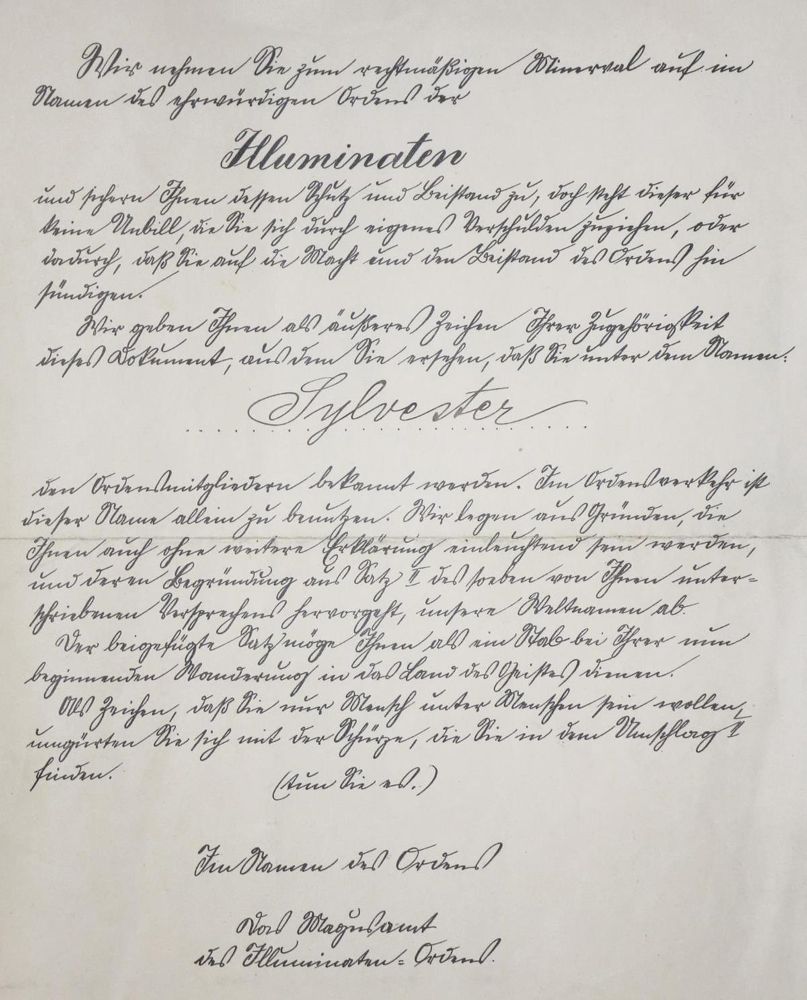 Wir nehmen Sie zum rechtmäßigen Minerval auf im
Namen des ehrwürdigen Ordens der
Illuminaten
und sichern Ihnen dessen Schutz und Beistand zu, doch steht dieser für
keine Unbill, die Sie sich durch eigenes Verschulden zuziehen, oder
dadurch, daß Sie auf die Macht und den Beistand des Ordens hin
sündigen.
Wir geben Ihnen als äußeres Zeichen Ihrer Zugehörigkeit
dieses Dokument, aus dem Sie ersehen, daß Sie unter dem Namen:
Sylvester
den Ordensmitgliedern bekannt werden. Im Ordensverkehr ist
dieser Name allein zu benutzen. Wir legen aus Gründen, die
Ihnen auch ohne weitere Erklärung einleuchtend sein werden,
und deren Begründung aus Satz II des soeben von Ihnen unter=
schriebenen Versprechens hervorgeht, unsere Weltnamen ab.
Der beigefügte Satz möge Ihnen als ein Stab bei Ihrer nun
beginnenden Wanderung in das Land des Geistes dienen.
Als Zeichen, daß Sie nur Mensch unter Menschen sein wollen,
umgürten Sie sich mit der Schürze, die Sie in dem Umschlag II
finden.
(tun Sie es.)
Im Namen des Ordens
Das Magusamt
des Illuminaten=Ordens.